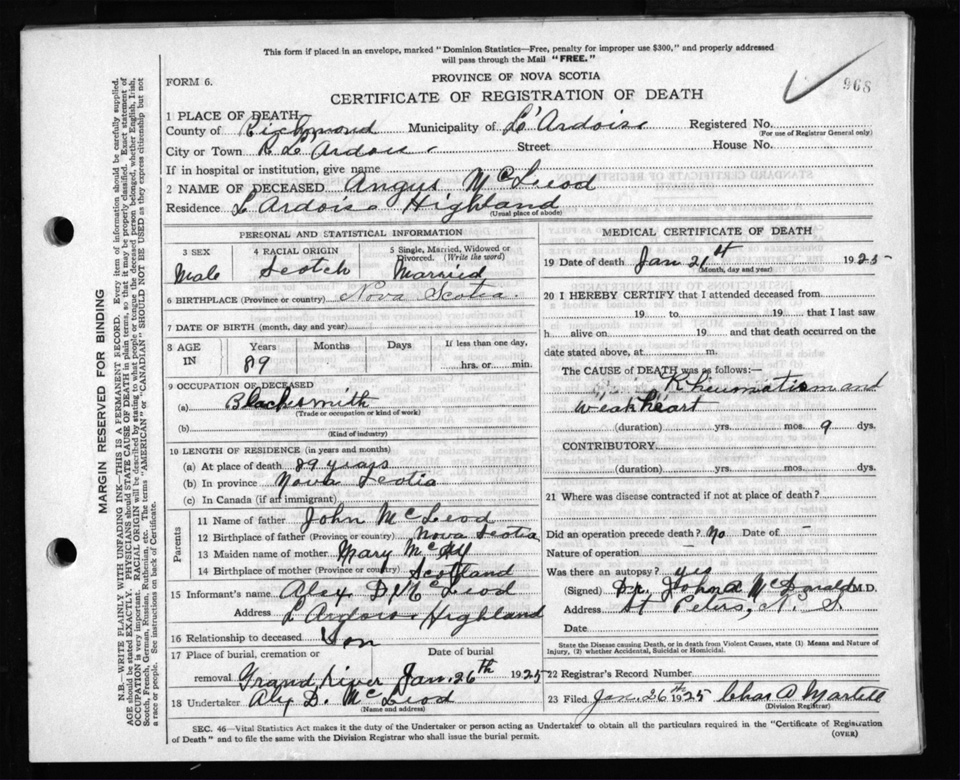 This form if placed in an envelope, marked "Dominion Statistics—Free, penalty for improper use $300," and properly addressed
will pass through the Mail "FREE."
968
FORM 6.
PROVINCE OF NOVA SCOTIA
CERTIFICATE OF REGISTRATION OF DEATH
1 PLACE OF DEATH
County of Richmond Municipality of L'Ardoise Registered No.
(For use of Registrar General only)
City or Town R. L'Ardoise Street House No.
If in hospital or institution, give name
2 NAME OF DECEASED Angus McLeod
Residence L'Ardoise Highland
(Usual place of abode)
PERSONAL AND STATISTICAL INFORMATION
3 SEX
Male
4 RACIAL ORIGIN
Scotch
5 Single, Married, Widowed or
Divorced. (Write the word)
Married
6 BIRTHPLACE (Province or country) Nova Scotia.
7 DATE OF BIRTH (month, day and year)
8 AGE
IN
Years
89
Months
Days
If less than one day,
hrs. or min.
9 OCCUPATION OF DECEASED
(a) Blacksmith
(Trade or occupation or kind of work)
(b)
(Kind of industry)
10 LENGTH OF RESIDENCE (in years and months)
(a) At place of death 89 years
(b) In province Nova Scotia
(c) In Canada (if an immigrant)
Parents
11 Name of father John McLeod
12 Birthplace of father (Province or country) Nova Scotia
13 Maiden name of mother Mary
14 Birthplace of mother (Province or country) Scotland
15 Informant's name Alex D. McLeod
Address L'Ardoise Highland
16 Relationship to deceased Son
17 Place of burial, cremation or Date of burial
removal Grand River Jan. 26th 1925
18 Undertaker Alex D. McLeod
(Name and address)
MEDICAL CERTIFICATE OF DEATH
19 Date of death Jan 21st 1925
(Month, day and year)
20 I HEREBY CERTIFY that I attended deceased from
19 to 19 that I last saw
h alive on 19 and that death occurred on the
date stated above, at m.
The CAUSE of DEATH was as follows:—
Rheumatism and
weak heart
(duration) yrs. mos. 9 dys.
CONTRIBUTORY
(duration) yrs. mos. dys.
21 Where was disease contracted if not at place of death?
Did an operation precede death? No Date of
Nature of operation
Was there an autopsy? yes
(Signed) Dr. John A McDonald M.D.
Address St Peters, N. S
Date
State the Disease causing Death, or in death from Violent Causes, state (1) Means and Nature of
Injury, (2) whether Accidental, Suicidal or Homicidal.
22 Registrar's Record Number
23 Filed Jan. 26th 1925 Chas A Martell
(Division Registrar)
SEC. 46—Vital Statistics Act makes it the duty of the Undertaker or person acting as Undertaker to obtain all the particulars required in the "Certificate of Registration
of Death" and to file the same with the Division Registrar who shall issue the burial permit.
(OVER)
MARGIN RESERVED FOR BINDING
N.B.—WRITE PLAINLY WITH UNFADING INK—THIS IS A PERMANENT RECORD. Every item of information should be carefully supplied.
AGE should be stated EXACTLY. PHYSICIANS should STATE CAUSE OF DEATH in plain terms, so that it may be properly classified. Exact statement of
OCCUPATION is very important. RACIAL ORIGIN will be described by stating to what people or tongue the deceased person belonged, whether English, Irish,
Scotch, French, German, Russian, Ruthenian, etc. The terms "AMERICAN" or "CANADIAN" SHOULD NOT BE USED as they express citizenship but not
a race or people. See instructions on back of Certificate.